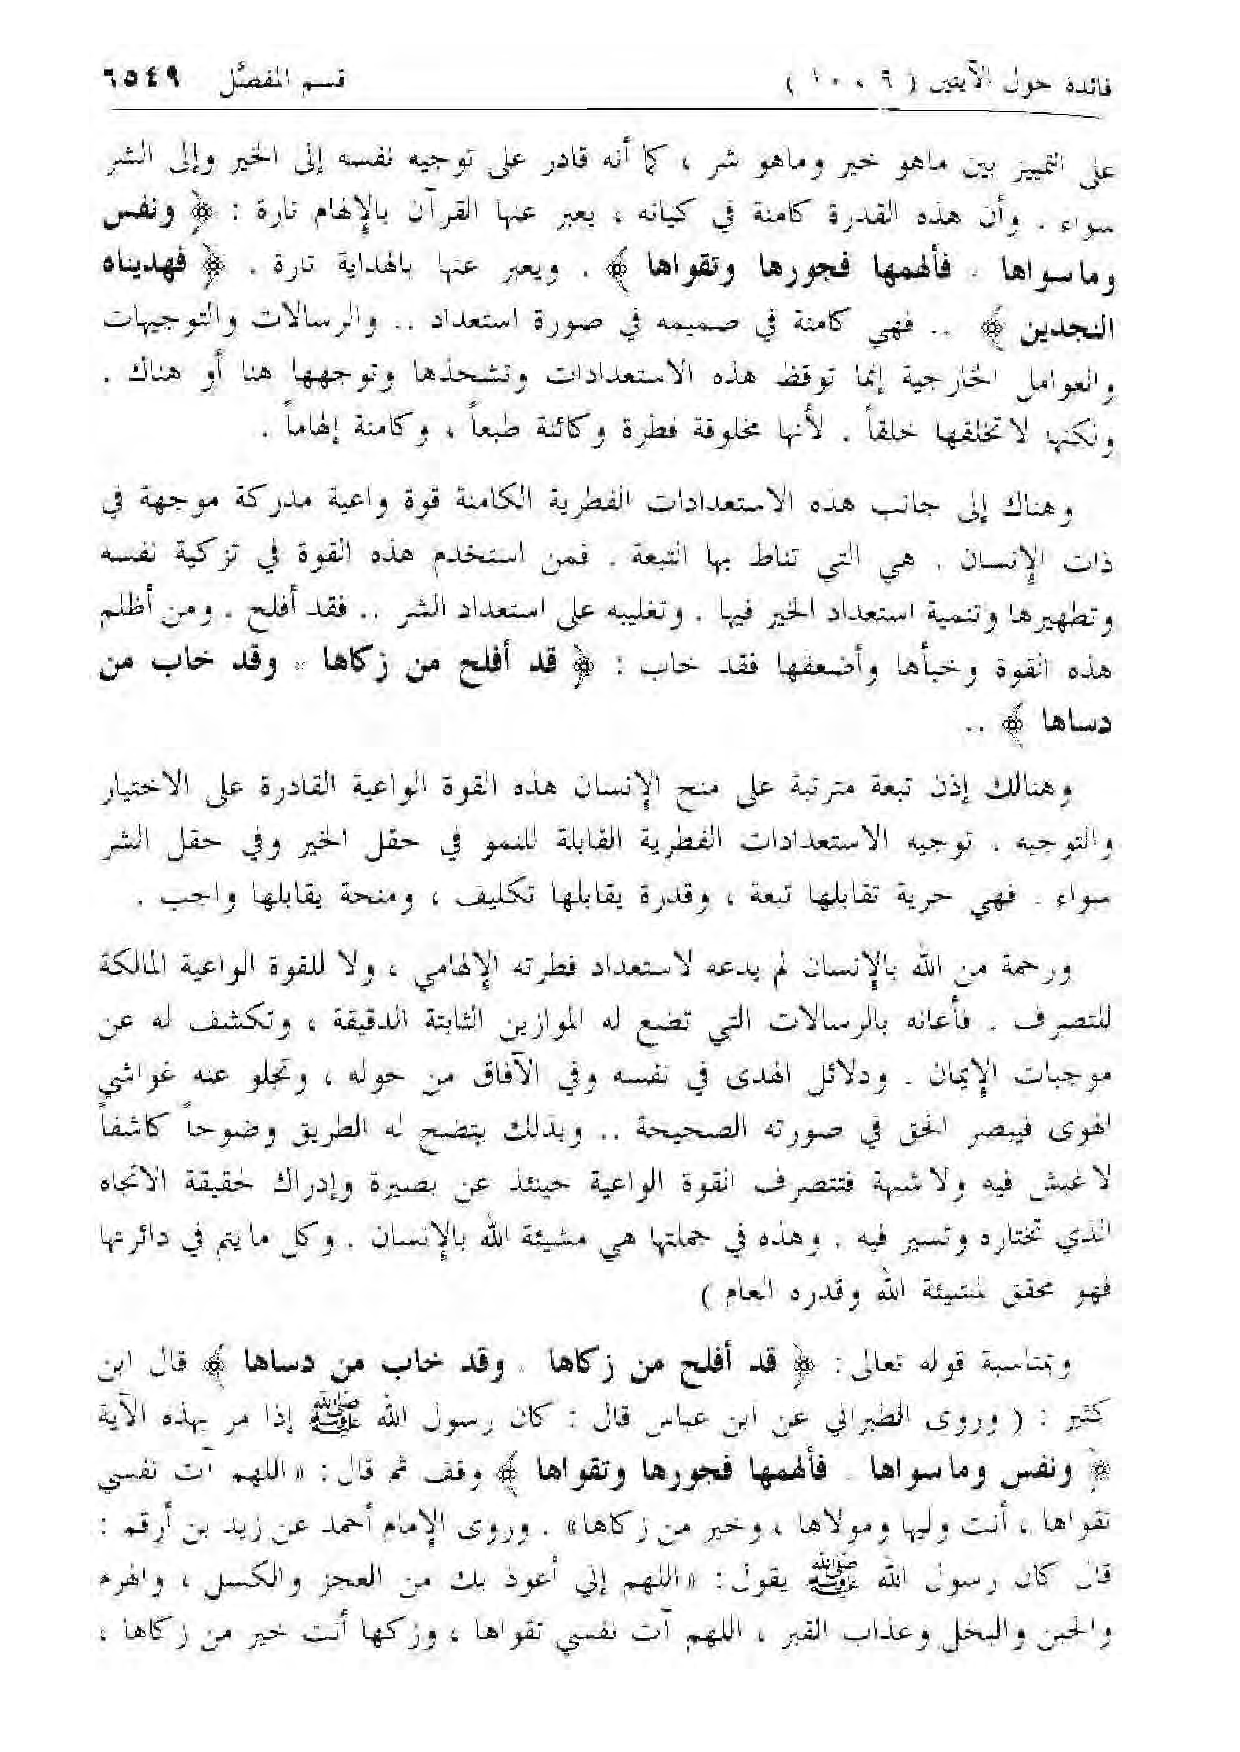 فائدة حول الآيتين ( ٩ ، ١٠ ) قسم المفصَّل ٦٥٤٩
على التمييز بين ماهو خير وماهو شر ، كما أنه قادر على توجيه نفسه إلى الخير وإلى الشر
سواء . وأن هذه القدرة كامنة في كيانه ، يعبر عنها القرآن بالإلهام تارة : ﴿ ونفس
وماسواها . فألهمها فجورها وتقواها ﴾ . ويعبر عنها بالهداية تارة . ﴿ فهديناه
النجدين ﴾ .. فهي كامنة في صميمه في صورة استعداد .. والرسالات والتوجيهات
والعوامل الخارجية إنما توقظ هذه الاستعدادات وتشحذها وتوجهها هنا أو هناك .
ولكنها لاتخلقها خلقاً . لأنها مخلوقة فطرة وكائنة طبعاً ، وكامنة إلهاماً .
وهناك إلى جانب هذه الاستعدادات الفطرية الكامنة قوة واعية مدركة موجهة في
ذات الإنسان . هي التي تناط بها التبعة . فمن استخدم هذه القوة في تزكية نفسه
وتطهيرها وتنمية استعداد الخير فيها . وتغليبه على استعداد الشر .. فقد أفلح . ومن أظلم
هذه القوة وخبأها وأضعفها فقد خاب : ﴿ قد أفلح من زكاها * وقد خاب من
دساها ﴾ ..
وهنالك إذن تبعة مترتبة على منح الإنسان هذه القوة الواعية القادرة على الاختيار
والتوجيه . توجيه الاستعدادات الفطرية القابلة للنمو في حقل الخير وفي حقل الشر
سواء . فهي حرية تقابلها تبعة ، وقدرة يقابلها تكليف ، ومنحة يقابلها واجب .
ورحمة من الله بالإنسان لم يدعه لاستعداد فطرته الإلهامي ، ولا للقوة الواعية المالكة
للتصرف . فأعانه بالرسالات التي تضع له الموازين الثابتة الدقيقة ، وتكشف له عن
موجبات الإيمان . ودلائل الهدى في نفسه وفي الآفاق من حوله ، وتجلو عنه غواشي
الهوى فيبصر الحق في صورته الصحيحة .. وبذلك يتضح له الطريق وضوحاً كاشفاً
لاغبش فيه ولاشبهة فتتصرف القوة الواعية حينئذ عن بصيرة وإدراك لحقيقة الاتجاه
الذي تختاره وتسير فيه . وهذه في جملتها هي مشيئة الله بالإنسان . وكل مايتم في دائرتها
فهو محقق لمشيئة الله وقدره العام )
وبمناسبة قوله تعالى : ﴿ قد أفلح من زكاها . وقد خاب من دساها ﴾ قال ابن
كثير : ( وروى الطبراني عن ابن عباس قال : كان رسول الله ﷺ إذا مر بهذه الآية
﴿ ونفس وماسواها . فألهمها فجورها وتقواها ﴾ وقف ثم قال : « اللهم آت نفسي
تقواها ، أنت وليها ومولاها ، وخير من زكاها» . وروى الإمام أحمد عن زيد بن أرقم :
قال كان رسول الله ﷺ يقول : « اللهم إني أعوذ بك من العجز والكسل ، والهرم
والجبن والبخل وعذاب القبر ، اللهم آت نفسي تقواها ، وزكها أنت خير من زكاها ،